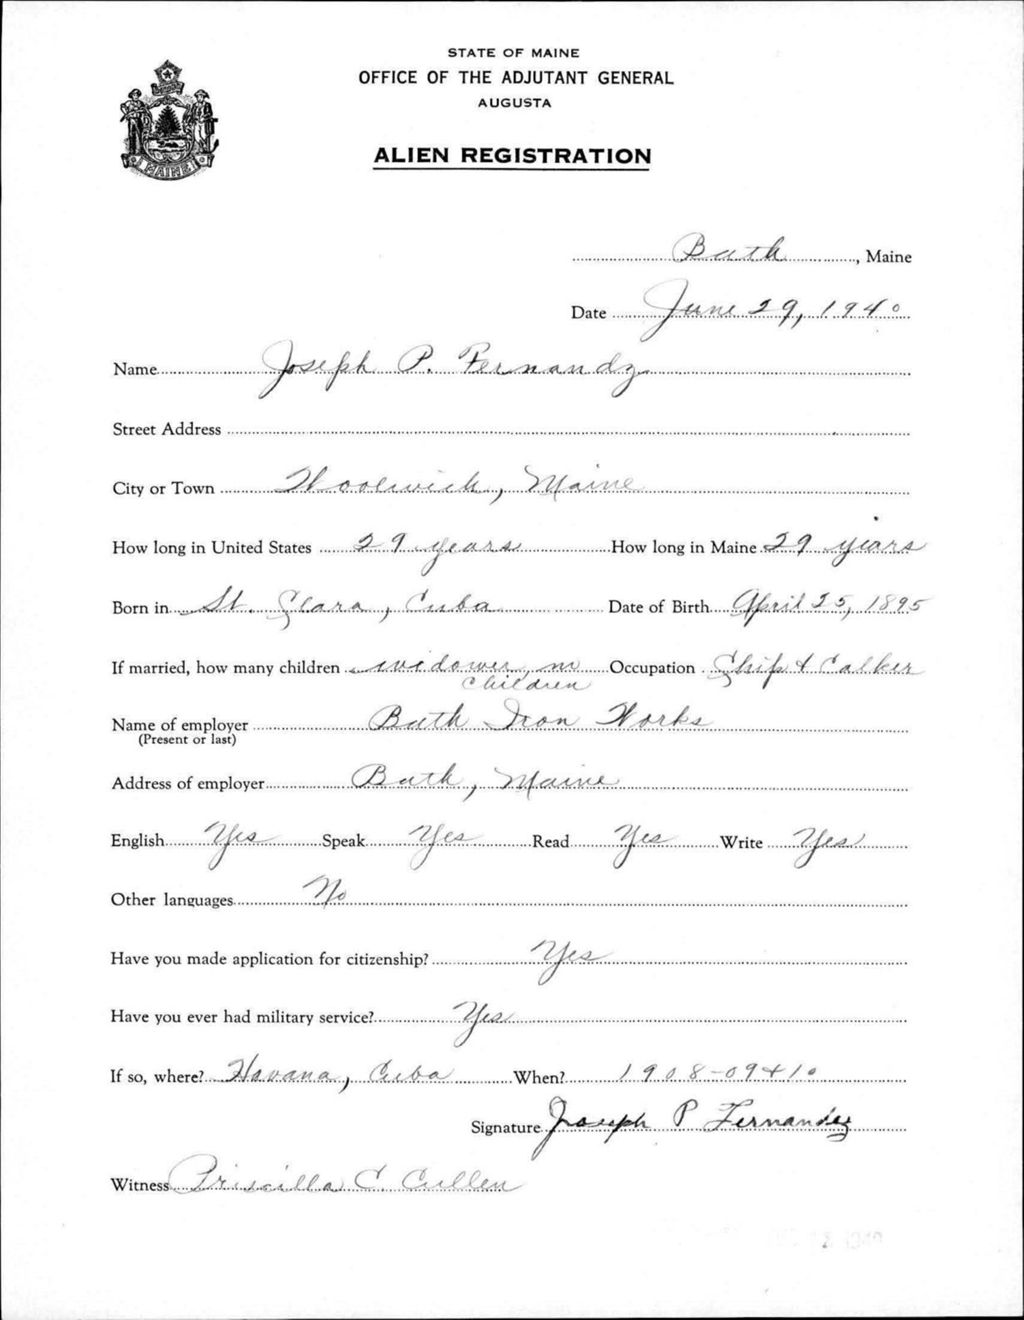 STATE OF MAINE
OFFICE OF THE ADJUTANT GENERAL
AUGUSTA
MAINE
ALIEN REGISTRATION
Bath, Maine
Date June 29, 1940
Name Joseph P. Fernandz
Street Address
City or Town Woolwich, Maine
How long in United States 29 years How long in Maine 29 years
Born in St. Clara, Cuba Date of Birth April 25, 1895
If married, how many children widower, no Occupation Ship & Calker
children
Name of employer Bath Iron Works
(Present or last)
Address of employer Bath, Maine
English Yes Speak Yes Read Yes Write Yes
Other languages No
Have you made application for citizenship? Yes
Have you ever had military service? Yes
If so, where? Havana, Cuba When? 1908-09 & 10
Signature Joseph P Fernandez
Witness Priscilla C. Cullen